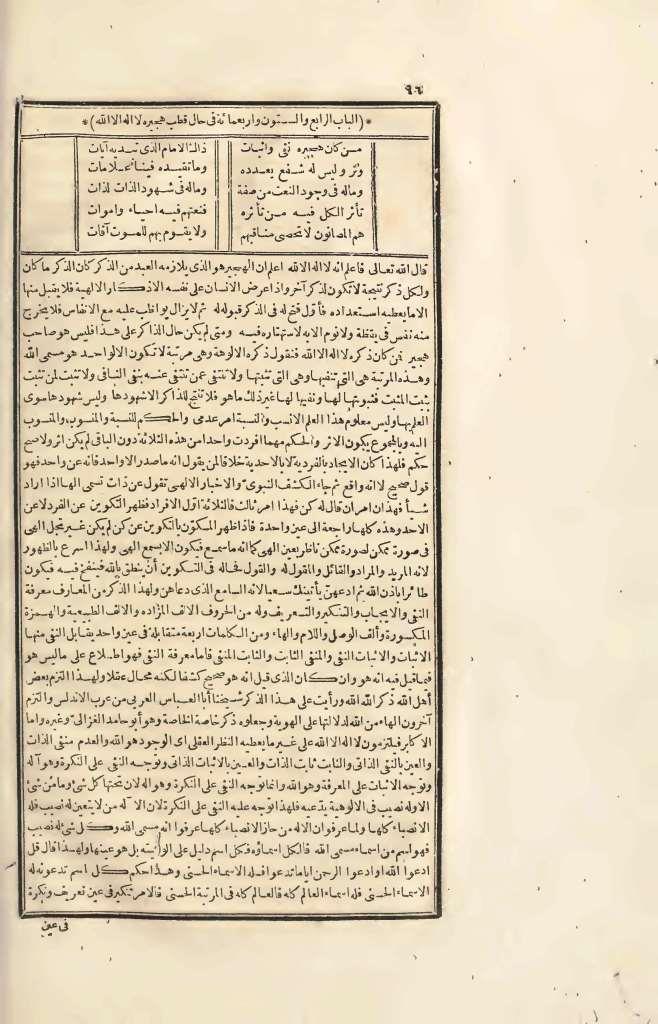 ٩٦
*(الباب الرابع والستون واربعمائة فى حال قطب هجيره لا اله الا الله)*
مـن كان هجيره نفى واثبات ذاك الامام الذى تبديه آيات
وتر وليس له شفع يعدده وما تقيده فينا علامات
وماله فى وجود النعت من صفة وماله فى شهود الذات لذات
تأثر الكل فيه مـن تأثره فنعتهم فيه احياء واموات
هم المصانون لا تحصى مناقبهم ولا يقوم بهم للموت آفات
قال الله تعالى فاعلم انه لا اله الا الله اعلم ان الهجير هو الذى يلازمه العبد من الذكر كان الذكر ما كان
ولكل ذكر نتيجة لا تكون لذكر آخر واذا عرض الانسان على نفسه الاذكار الالهية فلا يقبل منها
الا ما يعطيه استعداده فأول فتح له فى الذكر قبوله له ثم لا يزال يواظب عليه مع الانفاس فلا يخرج
منه نفس فى يقظة ولا نوم الا به لاستهتاره فيه ومتى لم يكن حال الذاكر على هذا فليس هو صاحب
هجير فمن كان ذكره لا اله الا الله فنقول ذكره الالوهة وهى مرتبة لا تكون الا لواحد هو مسمى الله
وهذه المرتبة هى التى تنفيها وهى التى تثبتها ولا تنتفى عمن تنتفى عنه بنفى النافى ولا تثبت لمن تثبت
بثبت المثبت فثبوتها لها ونفيها لها غير ذلك ما هو فلا تنتج للذاكر الا شهودها وليس شهودها سوى
العلم بها وليس معلوم هذا العلم الا نسب والنسبة امر عدمى والحكم للنسبة والمنسوب والمنسوب
اليه وبالمجموع يكون الاثر والحكم مهما افردت واحدا من هذه الثلاثة دون الباقى لم يكن اثر ولا صح
حكم فلهذا كان الايجاد بالفردية لا بالاحدية خلافا لمن يقول انه ما صدر الا واحد فانه عن واحد فهو
قول صحيح لا انه واقع ثم جاء الكشف النبوى والاخبار الالهى بقول عن ذات تسمى الها اذا اراد
شيأ فهذان امران قال له كن فهذا امر ثالث فالثلاثة اول الافراد فظهر التكوين عن الفرد لا عن
الاحد وهذه كلها راجعة الى عين واحدة فاذا ظهر المكون بالتكوين عن كن لم يكن غير تجل الهى
فى صورة ممكن لصورة ممكن ناظر بعين الهى كما انه ما سمع فيكون الا بسمع الهى ولهذا اسرع بالظهور
لانه المريد والمراد والقائل والمقول له والقول فحاله فى التكوين أن ينطق بالله فينفخ فيه فيكون
طائرا باذن الله ثم ادعهن يأتينك سعيا لانه السامع الذى دعاهن ولهذا الذكر من المعارف معرفة
النفى والايجاب والتنكير والتعريف وله من الحروف الالف المزادة والالف الطبيعية والهمزة
المكسورة وألف الوصل واللام والهاء ومن الكلمات اربعة متقابلة فى عين واحد يقابل النفى منها
الاثبات والاثبات النفى والمنفى الثابت والثابت المنفى فاما معرفة النفى فهو اطلاع على ما ليس هو
فيما قيل فيه انه هو وان كان الذى قيل انه هو صحيح كشفا لكنه محال عقلا ولهذا التزم بعض
أهل الله ذكر الله الله ورأيت على هذا الذكر شيخنا أبا العباس العريبى من غرب الاندلس والتزم
آخرون الهاء من الله لدلالتها على الهوية وجعلوه ذكر خاصة الخاصة وهو أبو حامد الغزالى وغيره واما
الاكابر فيلتزمون لا اله الا الله على غير ما يعطيه النظر العقلى اى الوجود هو الله والعدم منفى الذات
والعين بالنفى الذاتى والثابت ثابت الذات والعين بالاثبات الذاتى وتوجه النفى على النكرة وهو آله
وتوجه الاثبات على المعرفة وهو الله وانما توجه النفى على النكرة وهو اله لان تحتها كل شئ وما من شئ
الا وله نصيب فى الالوهية يدعيه فلهذا توجه عليه النفى على النكرة لان الآله من لا يتعين له نصيب فله
الانصباء كلها ولما عرفوا ان الاله من حاز الانصباء كلها عرفوا انه مسمى الله وكل شئ له نصيب
فهو اسم من اسماء مسمى الله فالكل اسماؤه فكل اسم دليل على الهوية بل هو عينها ولهذا قال قل
ادعوا الله او ادعوا الرحمن ايا ما تدعوا فله الاسماء الحسنى وهذا حكم كل اسم تدعونه له
الاسماء الحسنى فله اسماء العالم كله فالعالم كله فى المرتبة الحسنى فالامر تنكير فى عين تعريف ونكرة
فى عين